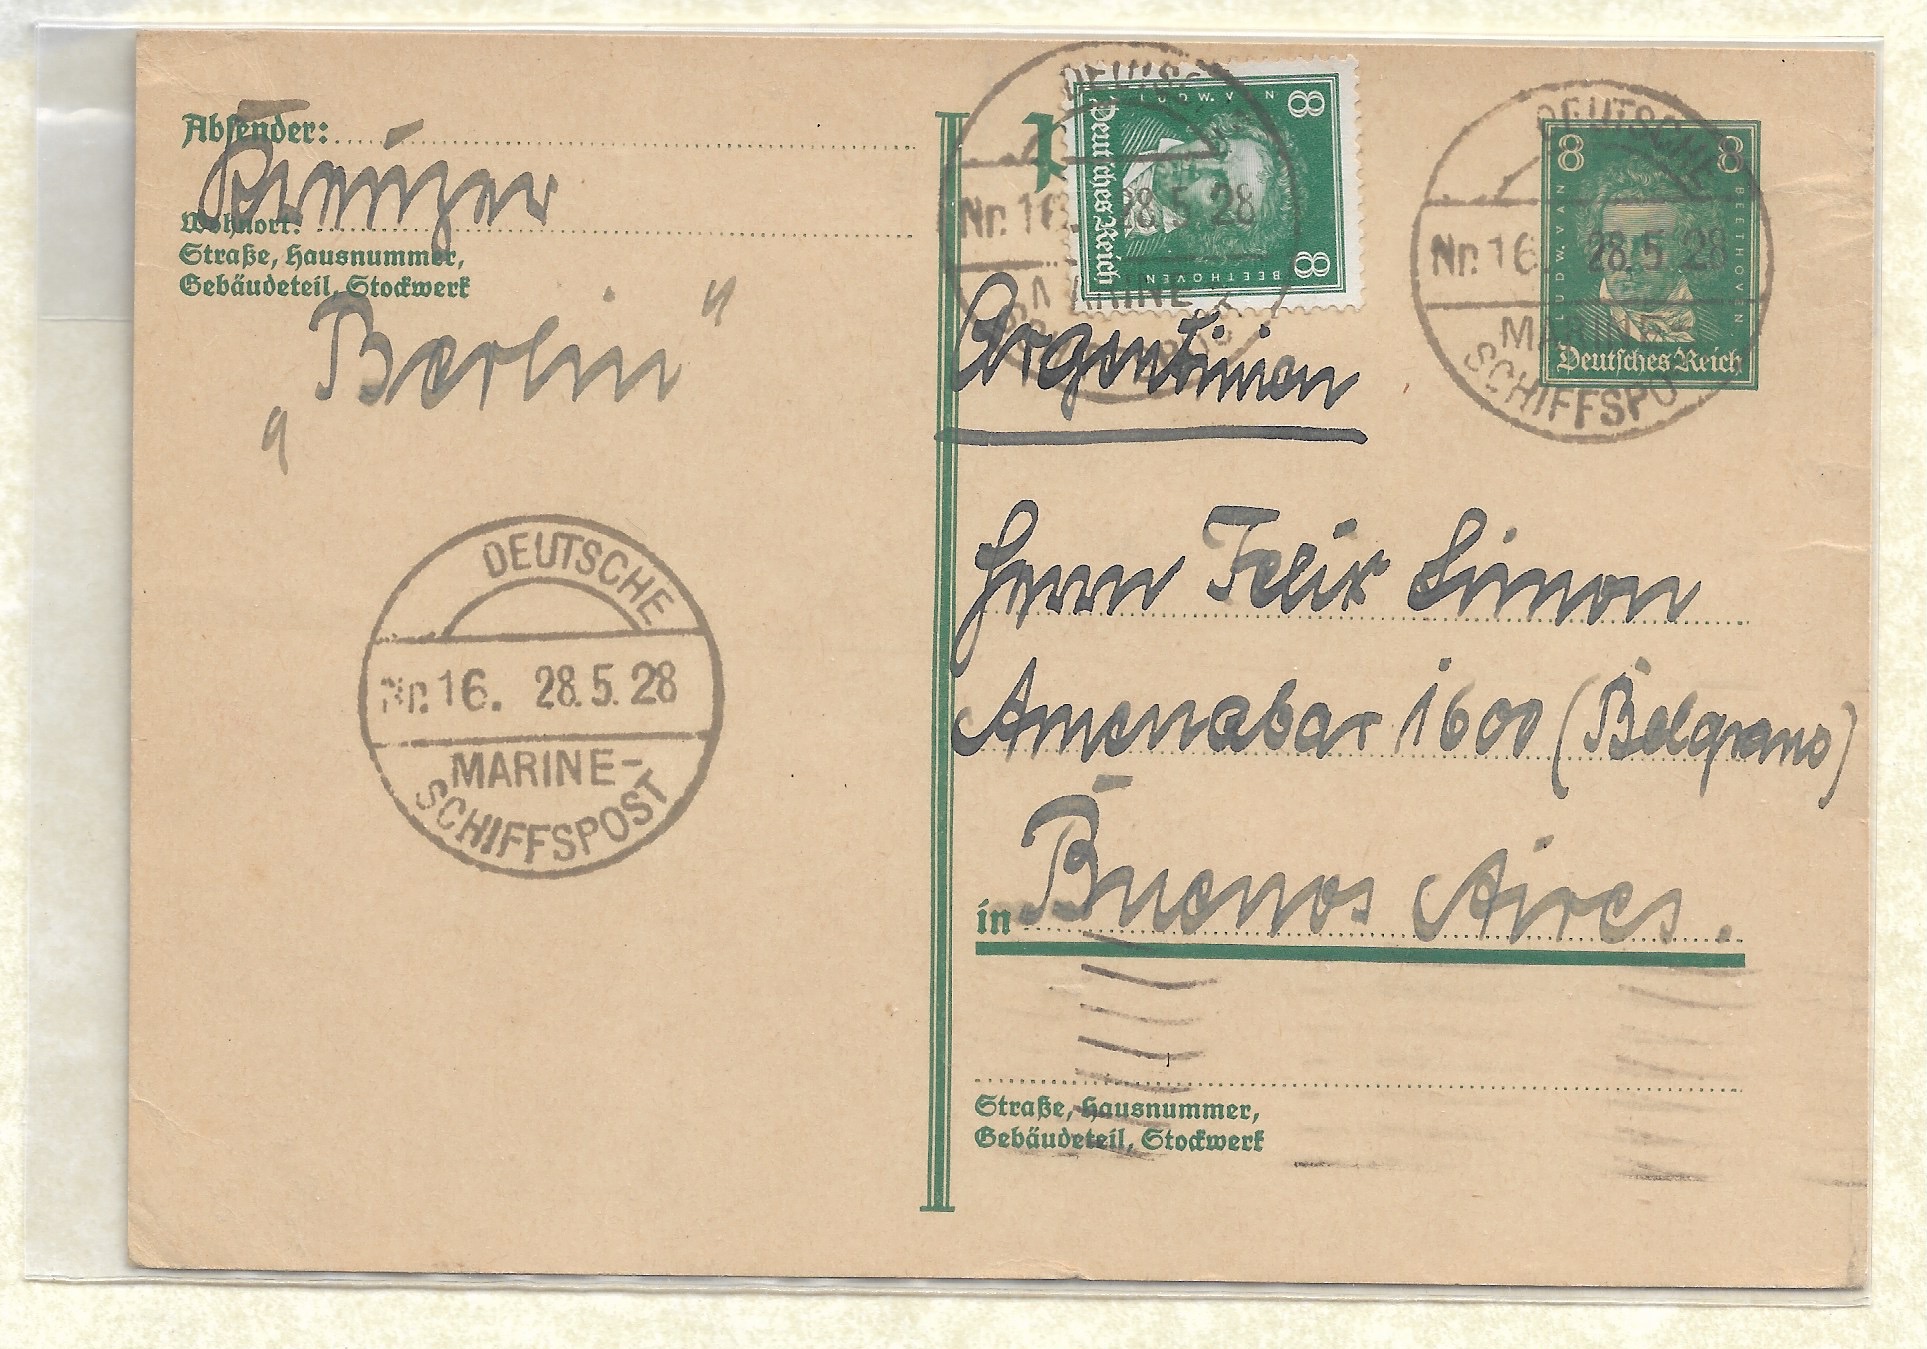 Absender:
Kreuzer
Wohnort:
Straße, Hausnummer,
Gebäudeteil, Stockwerk
"Berlin"
DEUTSCHE
Nr. 16. 28.5.28
MARINE-
SCHIFFSPOST
P
8 8
LUDW. VAN BEETHOVEN
Deutsches Reich
DEUTSCHE
Nr. 16. 28.5.28
MARINE-
SCHIFFSPOST
8 8
LUDW. VAN BEETHOVEN
Deutsches Reich
DEUTSCHE
Nr. 16. 28.5.28
MARINE-
SCHIFFSPO
Argentinien
Herrn Felix Simon
Amenabar 1600 (Belgrano)
in Buenos Aires.
Straße, Hausnummer,
Gebäudeteil, Stockwerk